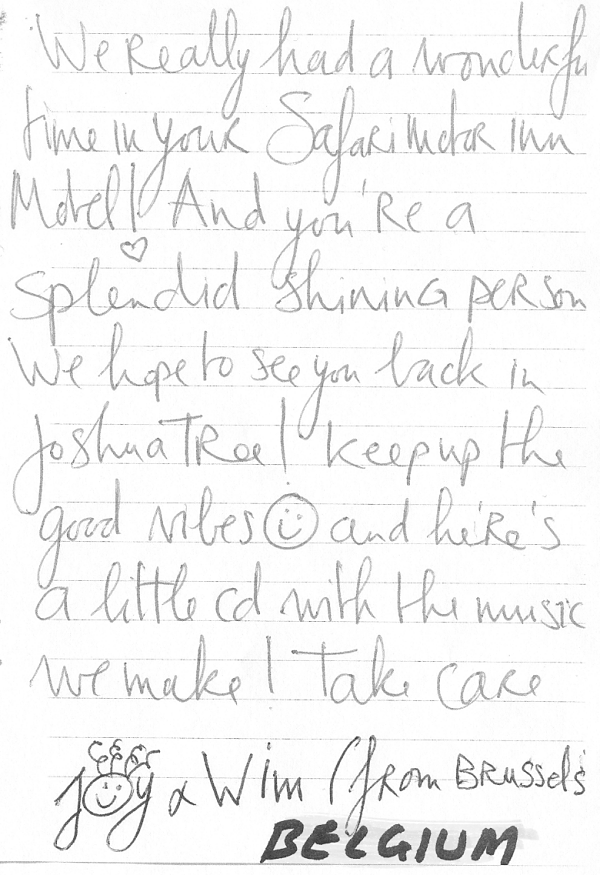 We Really had a wonderfu
time in your Safari Motor Inn
Motel! And you're a
splendid shining person
We hope to see you back in
Joshua Tree! keep up the
good vibes and he're's
a little cd with the music
we make! Take care
joy & Wim (from Brussels
BELGIUM